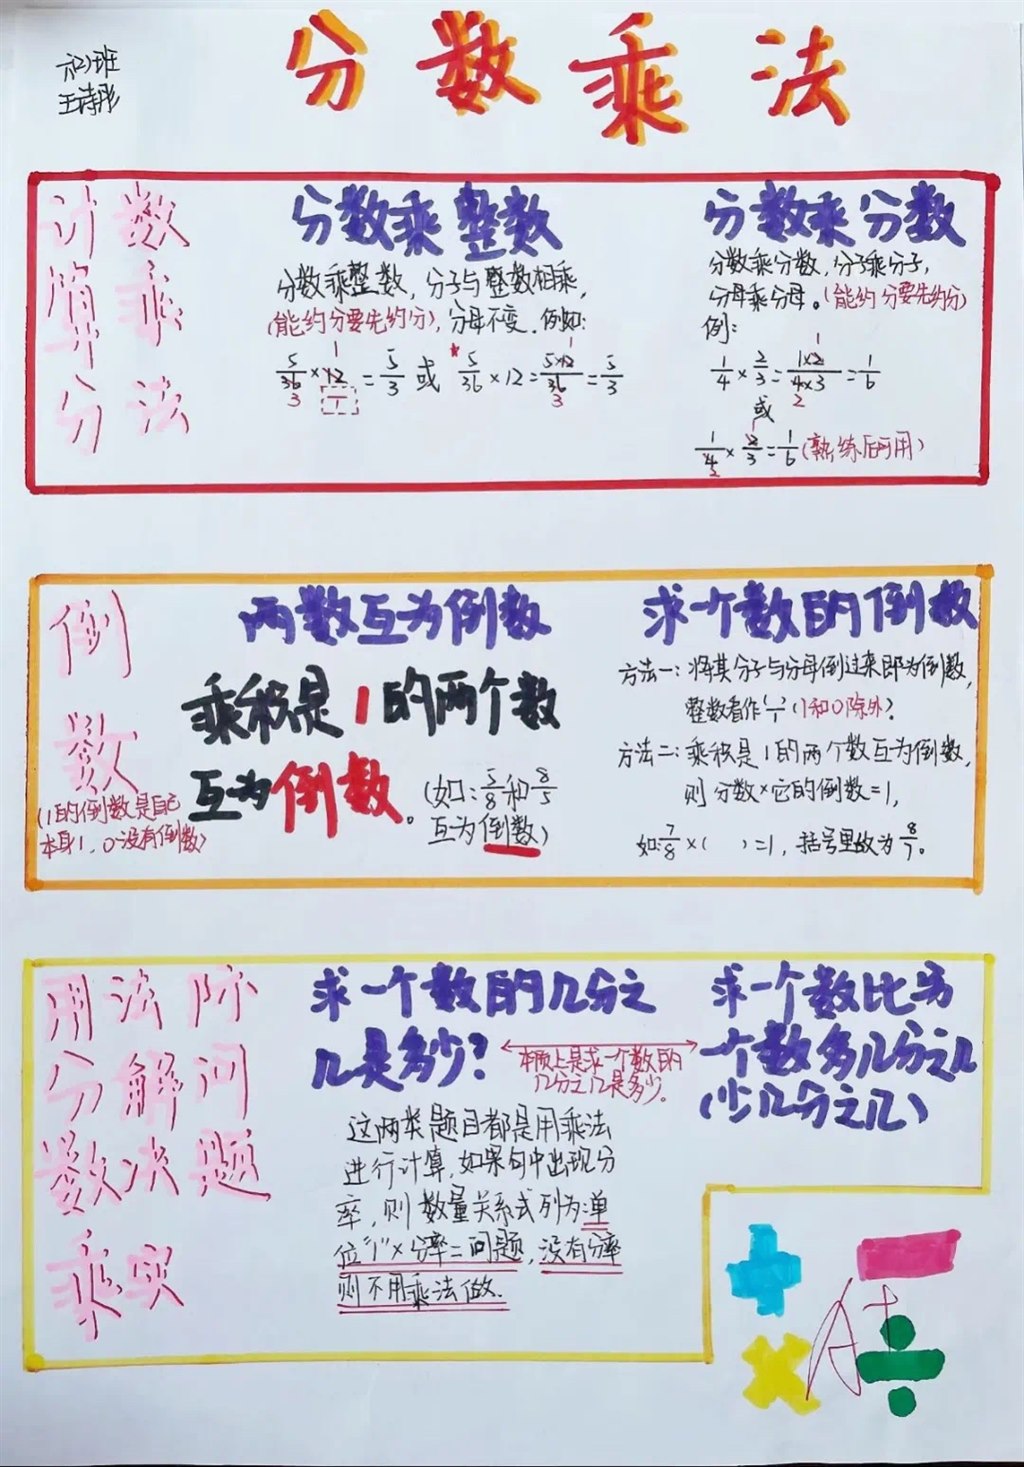 六(2)班
王诗彤
分数乘法
计算分数乘法
分数乘整数
分数乘整数，分子与整数相乘，
(能约分要先约分)，分母不变。例如：
5/36 3 × 12 1 1 = 5/3 或 * 5/36 × 12 = 5×12 1/36 3 = 5/3
分数乘分数
分数乘分数，分子乘分子，
分母乘分母。(能约分要先约分)
例：
1/4 × 2/3 = 1×2 1/4×3 2 = 1/6
或
1/4 2 × 2 1/3 = 1/6 (熟练后可用)
倒数
(1的倒数是自己
本身1，0没有倒数)
两数互为倒数
乘积是1的两个数
互为倒数。
(如：5/8和8/5
互为倒数)
求一个数的倒数
方法一：将其分子与分母倒过来即为倒数，
整数看作一/1 (1和0除外)。
方法二：乘积是1的两个数互为倒数，
则分数×它的倒数=1，
如：7/8×( )=1，括号里故为8/7。
用分数乘法解决实际问题
求一个数的几分之
几是多少？
本质上是求一个数的
几分之几是多少。
求一个数比另
一个数多几分之几
(少几分之几)
这两类题目都是用乘法
进行计算，如果句中出现分
率，则数量关系式列为：单
位"1"×分率=问题，没有分率
则不用乘法做.
+ −
× ÷
A+